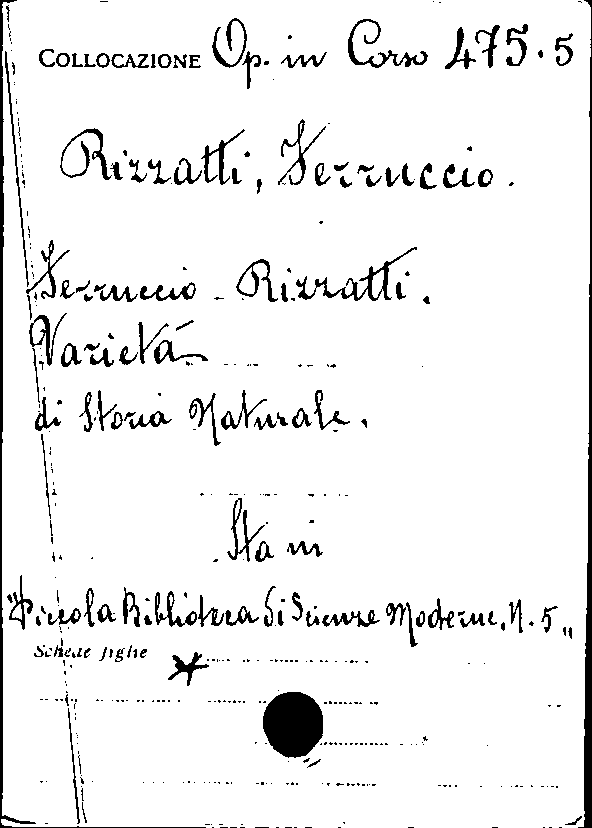 COLLOCAZIONE Op. in Corso 475.5
Rizzatti, Ferruccio.
Ferruccio Rizzatti.
Varietà
di Storia Naturale.
Sta in
"Piccola Biblioteca di Scienze Moderne, N. 5„
Schede figlie